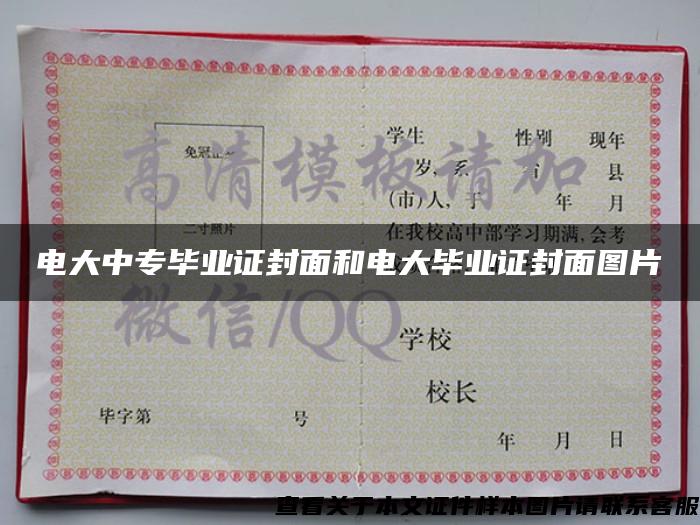 高清模板请加
微信/QQ
免冠正
二寸照片
毕字第 号
学生 性别 现年
岁,系 省 县
(市)人,于 年 月
在我校高中部学习期满,会考
学校
校长
年 月 日
电大中专毕业证封面和电大毕业证封面图片
查看关于本文证件样本图片请联系客服